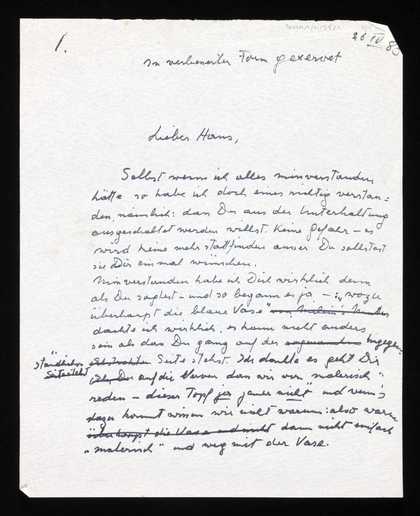 1.
26 IV 83
in verbesserter Form
Lieber Hans,
Selbst wenn ich alles missverstanden
hätte so habe ich doch eines richtig verstan=
den, nämlich: dass Du aus der Unterhaltung
ausgeschaltet werden willst. Keine Gefahr – es
wird keine mehr stattfinden ausser Du solltest
sie Dir einmal wünschen.
Missverstanden habe ich Dich wirklich denn
als Du sagtest – und so begann es ja – "wozu
überhaupt die blaue Vase"
dachte ich wirklich, es kann nicht anders
sein als dass Du ganz auf der
Seite stehst. Ich dachte es geht Dir
auf die Nerven dass wir von "malerisch"
reden – dieser Topf ja jener nicht und wenn's
dazu kommt wissen wir nicht warum: also warum
überhaupt die Vase dann nicht einfach
"malerisch" und weg mit der Vase.